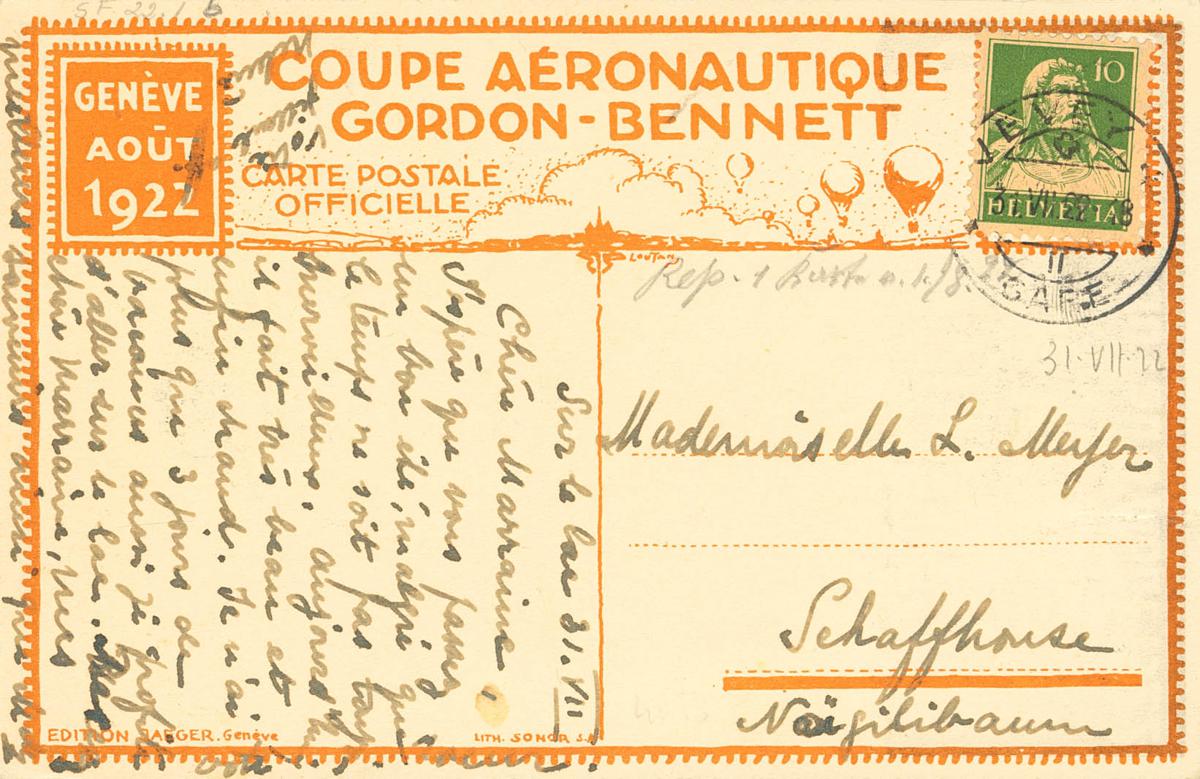 SF. 22.1 b
GENÈVE
AOÛT
1922
COUPE AÉRONAUTIQUE
GORDON-BENNETT
CARTE POSTALE
OFFICIELLE
LOUTAN
10
HELVETIA
VEVEY
31.VII.22.18
II
GARE
Rep. 1
31·VII·22
Mademoiselle L. Meyer
Schaffhouse
Nägilibaum
Sur le lac 31. VII
Chère Marraine,
J'espère que vous passez
un bon été, malgré que
le temps ne soit pas toujours
merveilleux, aujourd'hui
il fait très beau et
enfin chaud. Je n'ai
plus que 3 jours de
vacances aussi je profite
d'aller sur le lac.
chère Marraine, mes
ainsi que
EDITION JAEGER. Genève
LITH. SONOR S.A.